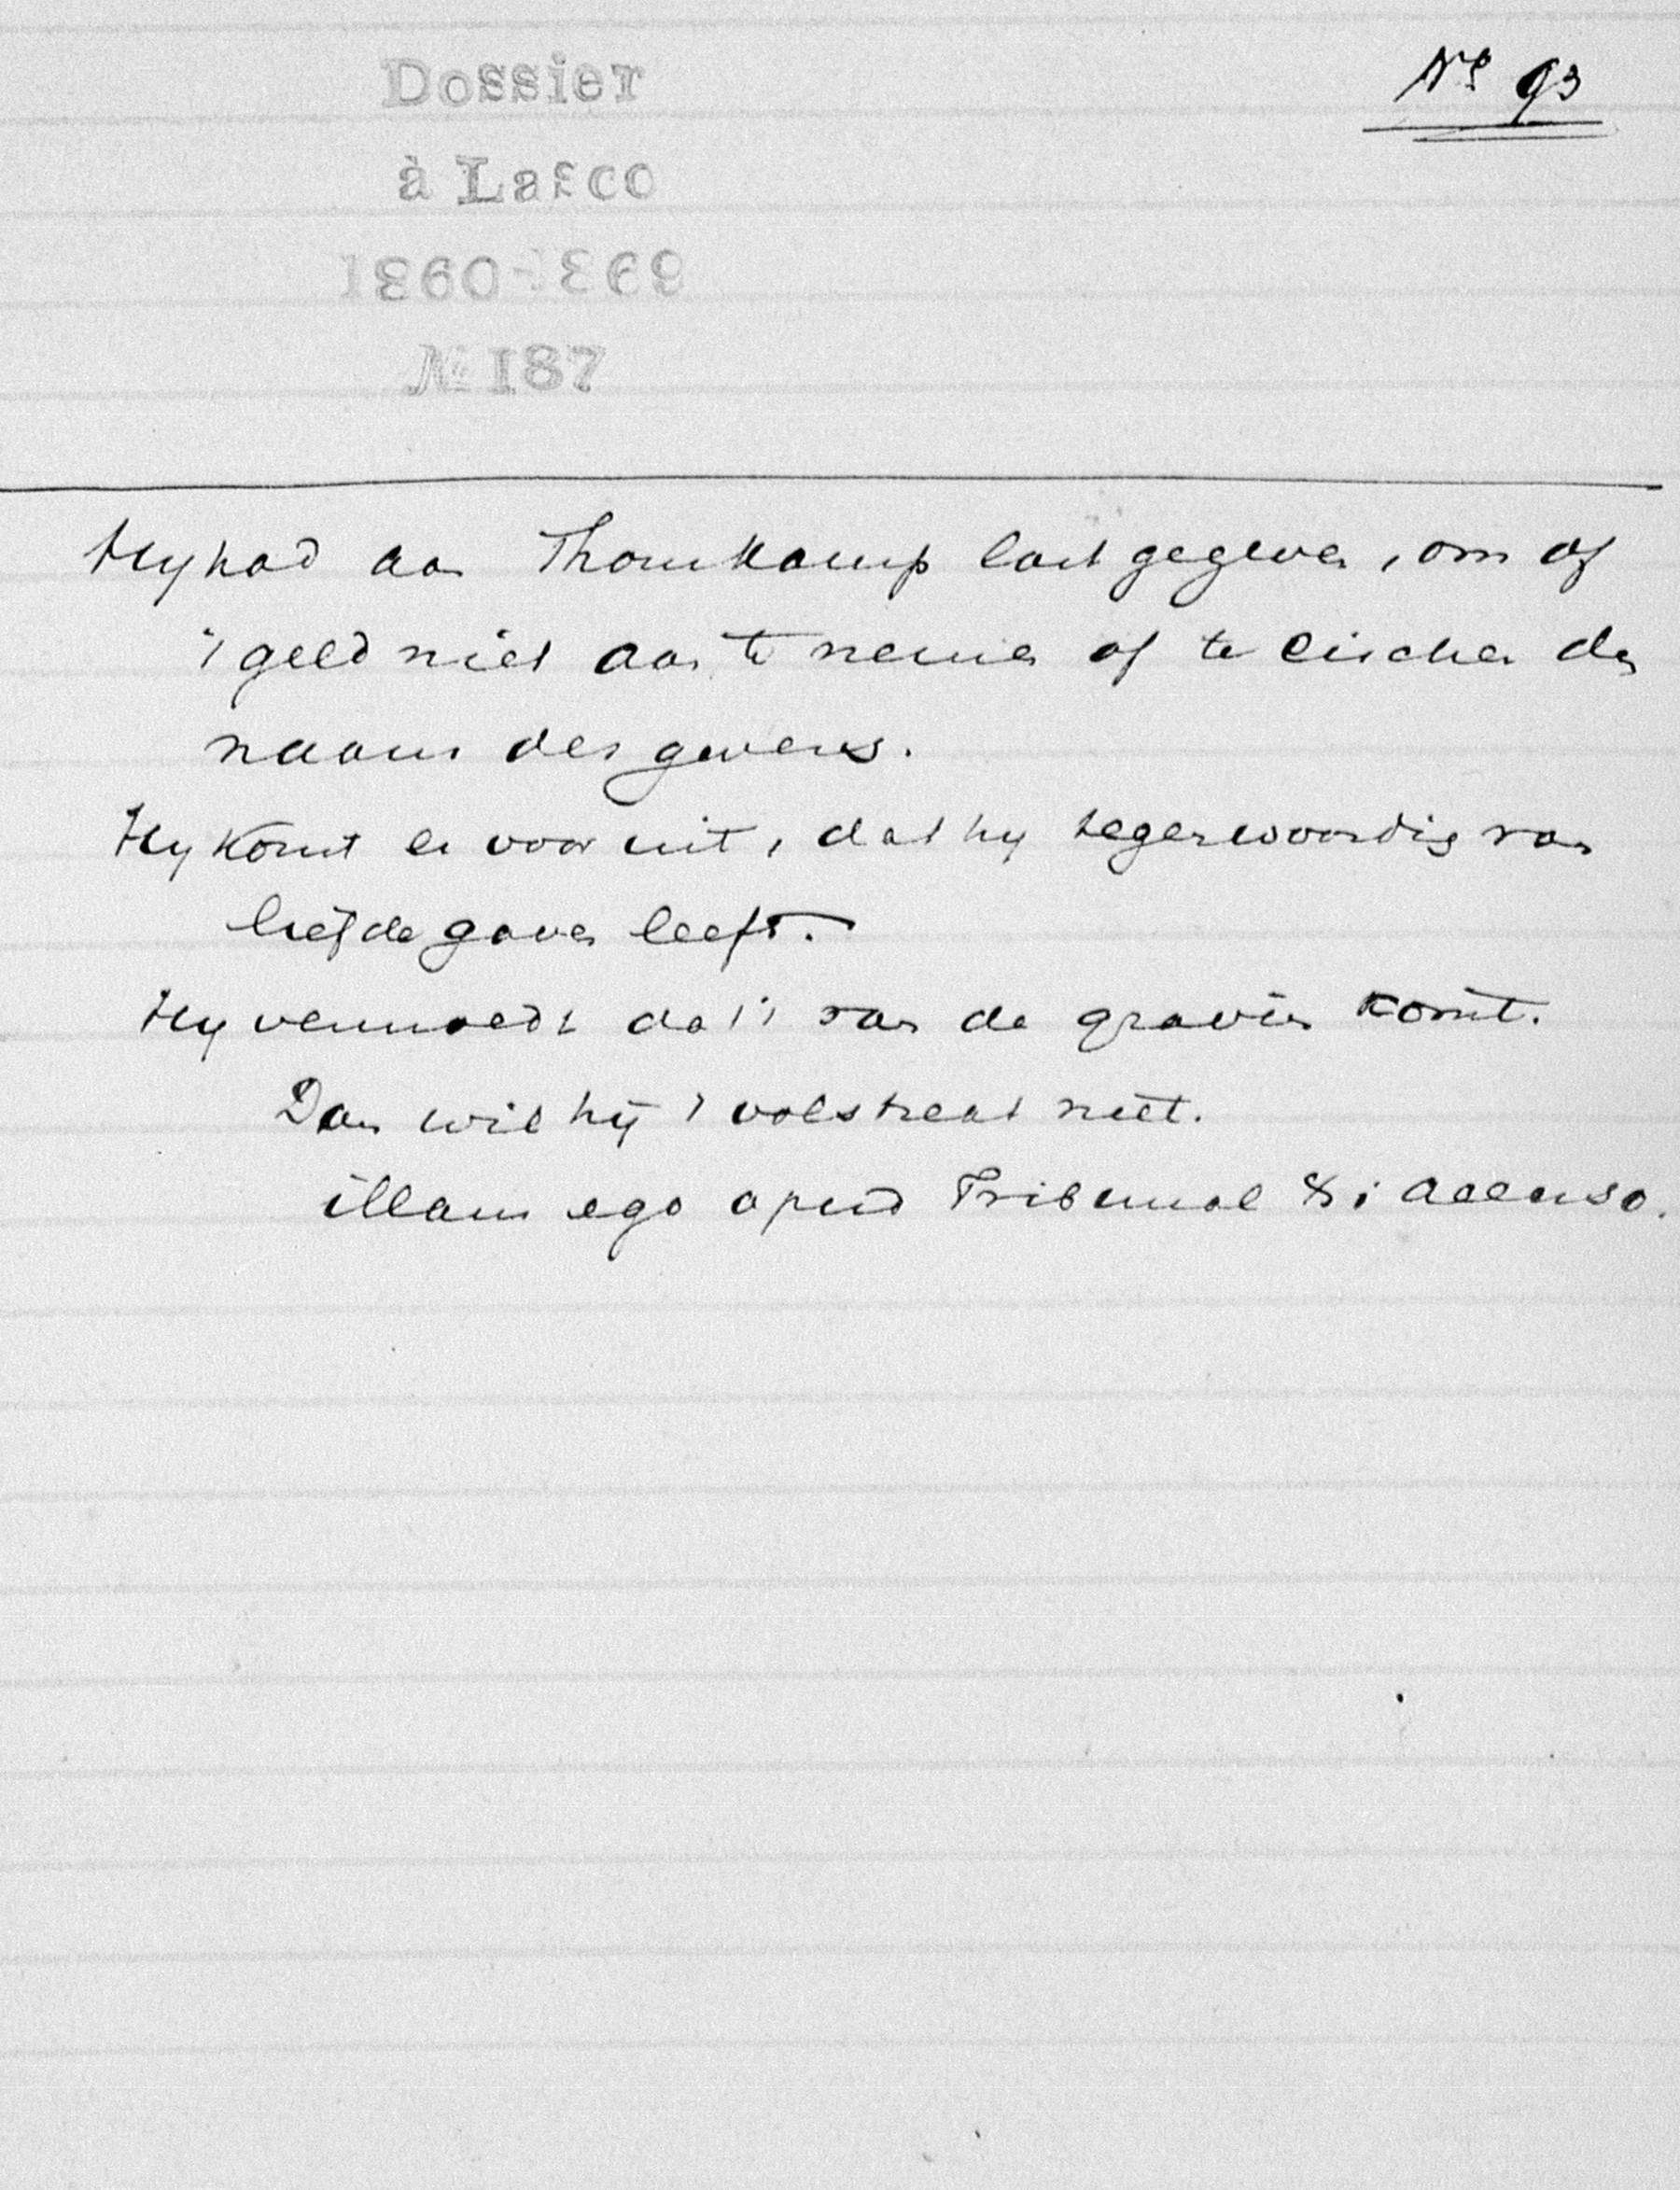 Dossier
Nº 93
à Lasco
1860-1869
№ 187
Hy had aan Thomkamp last gegeven, om of
't geld niet aan te nemen of te eischen den
naam des gevers.
Hy komt er voor uit, dat hy tegenwoordig van
liefdegaven leeft.
Hy vermoedt dat 't van de gravin komt.
Dan wil hij 't volstrekt niet.
illam ego apud Tribunal Di accuso.